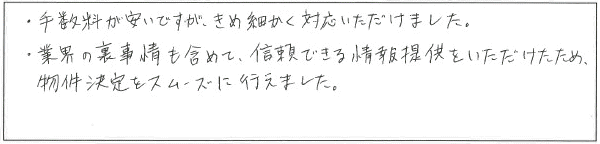 ・手数料が安いですが、きめ細かく対応いただけました。
・業界の裏事情も含めて、信頼できる情報提供をいただけたため、
物件決定をスムーズに行えました。